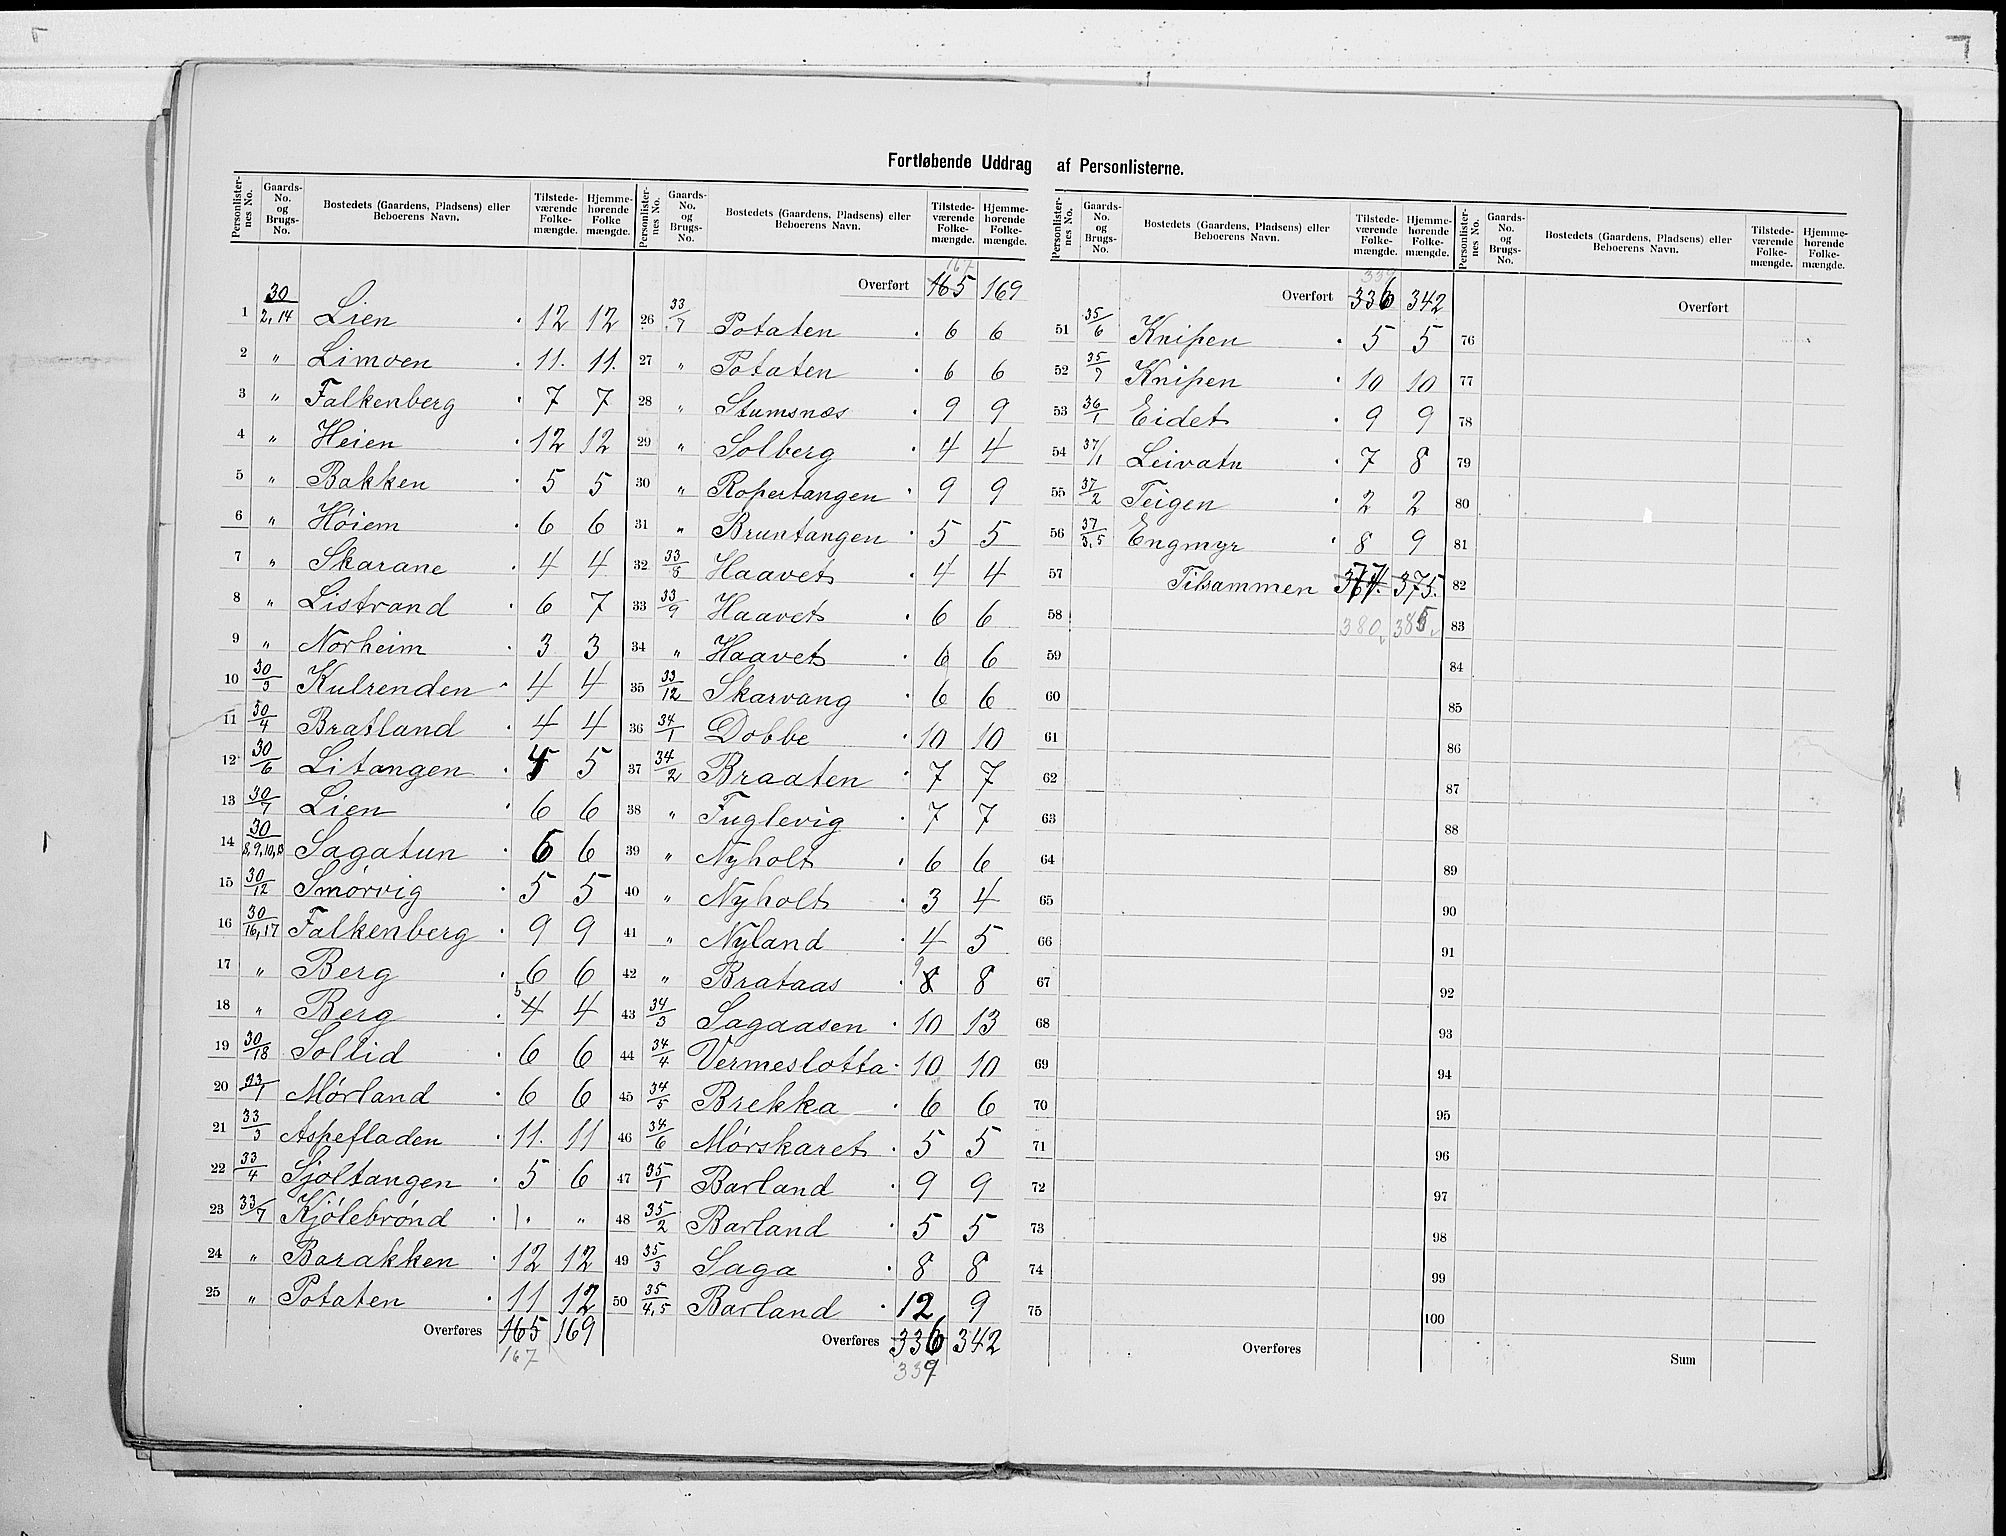 Fortløbende Uddrag af Personlisterne.
Personlister-nes No. | Gaards-No. og Brugs-No. | Bostedets (Gaardens, Pladsens) eller Beboerens Navn. | Tilstede-værende Folke-mængde. | Hjemme-hørende Folke mængde.
1 30/2,14 Lien 12 12
2 " Limoen 11. 11.
3 " Falkenberg 7 7
4 " Heien 12 12
5 " Bakken 5 5
6 " Høiem 6 6
7 " Skarane 4 4
8 " Listrand 6 7
9 " Norheim 3 3
10 30/3 Kulrenden 4 4
11 30/4 Bratland 4 4
12 30/6 Litangen 5
13 30/7 Lien 6 6
14 30/8,9,10,13 Sagatun 6 6
15 30/12 Smørvig 5 5
16 30/16,17 Falkenberg 9 9
17 " Berg 6 6
18 " Berg 4 5 4
19 30/18 Sollid 6 6
20 33/1 Mørland 6 6
21 33/3 Aspefladen 11. 11
22 33/4 Sjøltangen 5 6
23 33/7 Kjølebrønd 1. "
24 " Barakken 12 12
25 " Potaten 11 12
Overføres 165 169
167
Personlister-nes No. | Gaards-No. og Brugs-No. | Bostedets (Gaardens, Pladsens) eller Beboerens Navn. | Tilstede-værende Folke-mængde. | Hjemme-hørende Folke-mængde.
167
Overført 165 169
26 33/7 Potaten 6 6
27 " Potaten 6 6
28 " Stumsnæs 9 9
29 " Solberg 4 4
30 " Ropertangen 9 9
31 " Bruntangen 5 5
32 33/8 Haavet 4 4
33 33/9 Haavet 6 6
34 " Haavet 6 6
35 33/12 Skarvang 6 6
36 34/1 Dobbe 10 10
37 34/2 Braaten 7 7
38 " Fuglevig 7 7
39 " Nyholt 6 6
40 " Nyholt 3 4
41 " Nyland 4 5
42 " Brataas 9 8 8
43 34/3 Sagaasen 10 13
44 34/4 Vermeslotta 10 10
45 34/5 Brekka 6 6
46 34/6 Mørskaret 5 5
47 35/1 Barland 9 9
48 35/2 Barland 5 5
49 35/3 Saga 8 8
50 35/4,5 Barland 12 9
Overføres 336 342
339
Personlister-nes No. | Gaards-No. og Brugs-No. | Bostedets (Gaardens, Pladsens) eller Beboerens Navn. | Tilstede-værende Folke-mængde. | Hjemme-hørende Folke-mængde.
339
Overført 336 342
51 35/6 Knipen 5 5
52 35/7 Knipen 10 10
53 36/1 Eidet 9 9
54 37/1 Leivatn 7 8
55 37/2 Teigen 2 2
56 37/3,5 Engmyr 8 9
57 Tilsammen 377. 375.
58 380 385
59
60
61
62
63
64
65
66
67
68
69
70
71
72
73
74
75
Overføres
Personlister-nes No. | Gaards-No. og Brugs-No. | Bostedets (Gaardens, Pladsens) eller Beboerens Navn. | Tilstede-værende Folke-mængde. | Hjemme-hørende Folke-mængde.
Overført
76
77
78
79
80
81
82
83
84
85
86
87
88
89
90
91
92
93
94
95
96
97
98
99
100
Sum